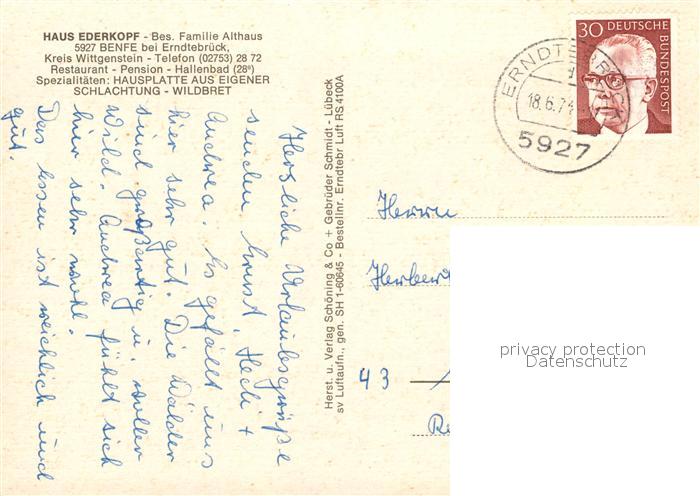 HAUS EDERKOPF - Bes. Familie Althaus
5927 BENFE bei Erndtebrück,
Kreis Wittgenstein - Telefon (02753) 28 72
Restaurant - Pension - Hallenbad (28°)
Spezialitäten: HAUSPLATTE AUS EIGENER
SCHLACHTUNG - WILDBRET
Herzliche Urlaubsgrüße
senden Ernst, Hedi +
Andrea. Es gefällt uns
hier sehr gut. Die Wälder
sind großartig u. voller
Wild. Andrea fühlt sich
hier sehr wohl.
Das Essen ist reichlich und
gut.
Herst. u. Verlag Schöning & Co + Gebrüder Schmidt - Lübeck
sv Luftaufn., gen. SH 1-60645 - Bestellnr. Erndtebr Luft RS 4100A
30 DEUTSCHE
BUNDESPOST
ERNDTEBRÜCK
18.6.74
5927
Herrn
Herbert
43
privacy protection
Datenschutz